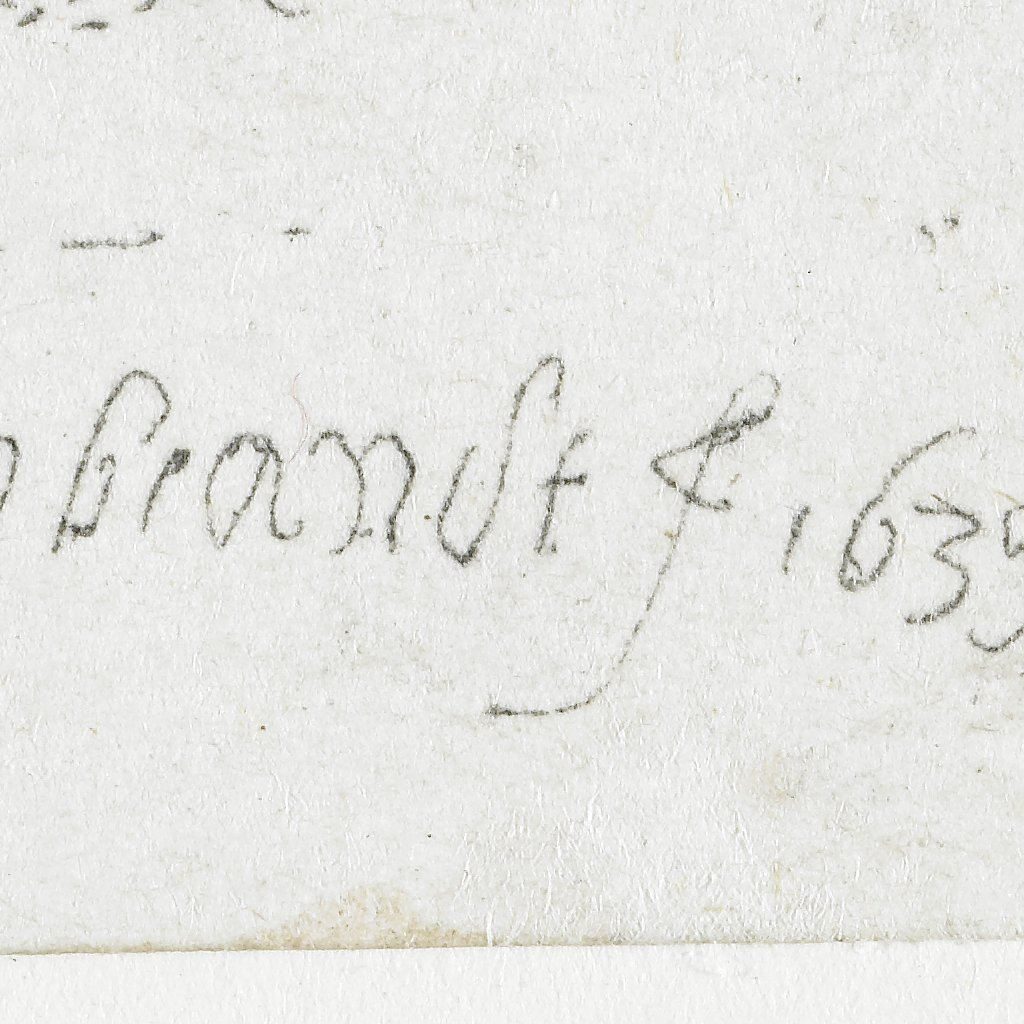 brandt f 1639